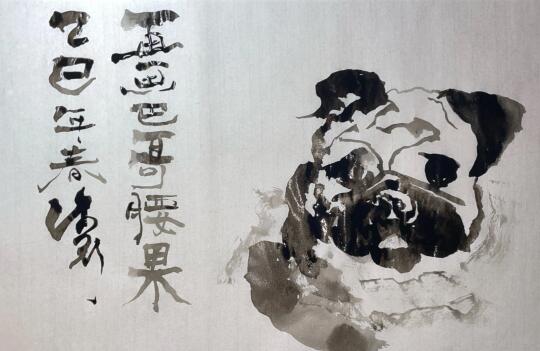 畫巴哥腰果
乙巳年春